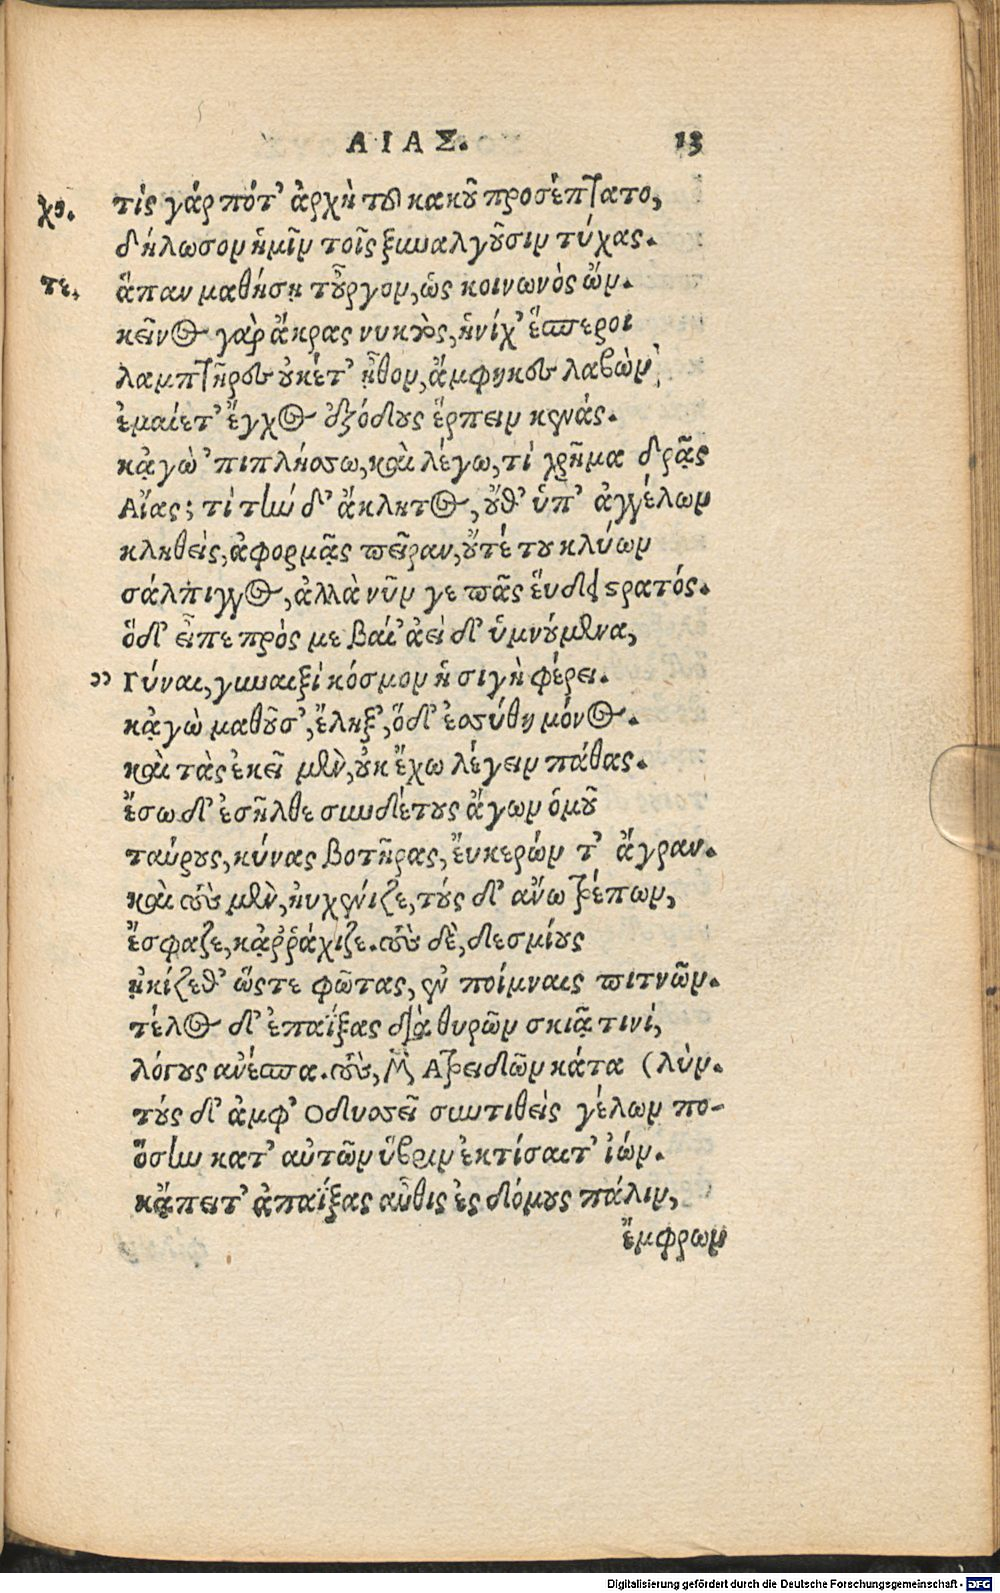 ΑΙΑΣ. 13
χο. τίς γάρ πότ' ἀρχὴ τοῦ κακοῦ προσέπτατο,
δήλωσον ἡμῖν τοῖς ξυναλγοῦσιν τύχας.
τε. ἅπαν μαθήσῃ τοὖργον, ὡς κοινωνὸς ὤν.
κεῖνος γὰρ ἄκρας νυκτὸς, ἡνίχ' ἕσπεροι
λαμπτῆρες οὐκέτ' ᾖθον, ἄμφηκες λαβὼν
ἐμαίετ' ἔγχος ἐξόδους ἕρπειν κενάς.
κᾀγὼ 'πιπλήσσω, καὶ λέγω, τί χρῆμα δρᾷς
Αἴας; τί τὴν δ' ἄκλητος, οὔθ' ὑπ' ἀγγέλων
κληθεὶς, ἀφορμᾷς πεῖραν, οὔτέ του κλύων
σάλπιγγος, ἀλλὰ νῦν γε πᾶς εὕδει στρατός.
ὅδ' εἶπε πρός με βαί' ἀεὶ δ' ὑμνούμενα,
" Γύναι, γυναιξὶ κόσμον ἡ σιγὴ φέρει.
κᾀγὼ μαθοῦσ', ἔληξ', ὅδ' ἐσσύθη μόνος.
καὶ τὰς ἐκεῖ μὲν, οὐκ ἔχω λέγειν πάθας.
ἔσω δ' ἐσῆλθε συνδέτους ἄγων ὁμοῦ
ταύρους, κύνας βοτῆρας, ἔυκερών τ' ἄγραν.
καὶ τοὺς μὲν, ηὐχένιζε, τοὺς δ' ἄνω τρέπων,
ἔσφαζε, κᾀῤῥάχιζε. τοὺς δὲ, δεσμίους
ᾐκίζεθ' ὥστε φῶτας, ἐν ποίμναις πιτνῶν.
τέλος δ' ἐπαΐξας διὰ θυρῶν σκιᾷ τινί,
λόγους ἀνέσπα. τοὺς, μὲν Ατρειδῶν κάτα (λὺν.
τοὺς δ' ἀμφ' Οδυσσεῖ συντιθεὶς γέλων πο-
ὅσην κατ' αὐτῶν ὕβριν ἐκτίσαιτ' ἰών.
κᾄπειτ' ἀπαΐξας αὖθις ἐς δόμους πάλιν,
ἔμφρων
Digitalisierung gefördert durch die Deutsche Forschungsgemeinschaft - DFG